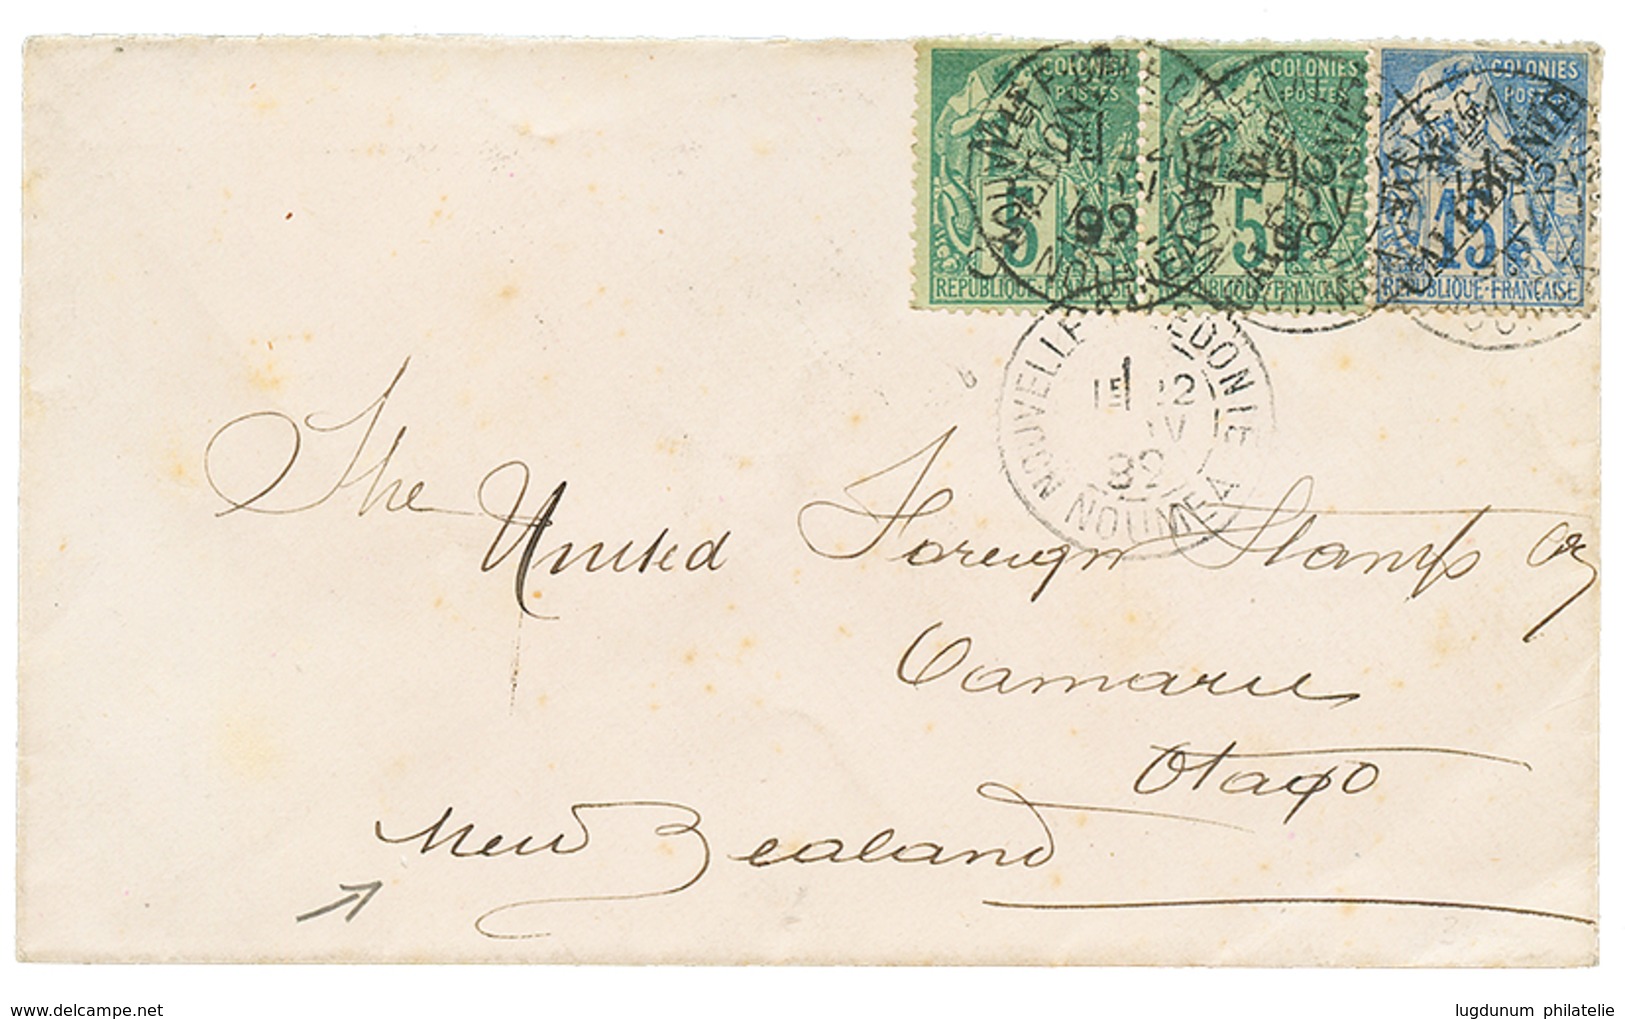 COLONIES COLONIES COLONIES
POSTES POSTES POSTES
5 5 15
RÉPUBLIQUE-FRANÇAISE RÉPUBLIQUE-FRANÇAISE RÉPUBLIQUE-FRANÇAISE
NOUVELLE CALEDONIE
NOUMEA
The United Foreign Stamp Co
Oamaru
Otago
New Zealand
www.delcampe.net lugdunum philatelie